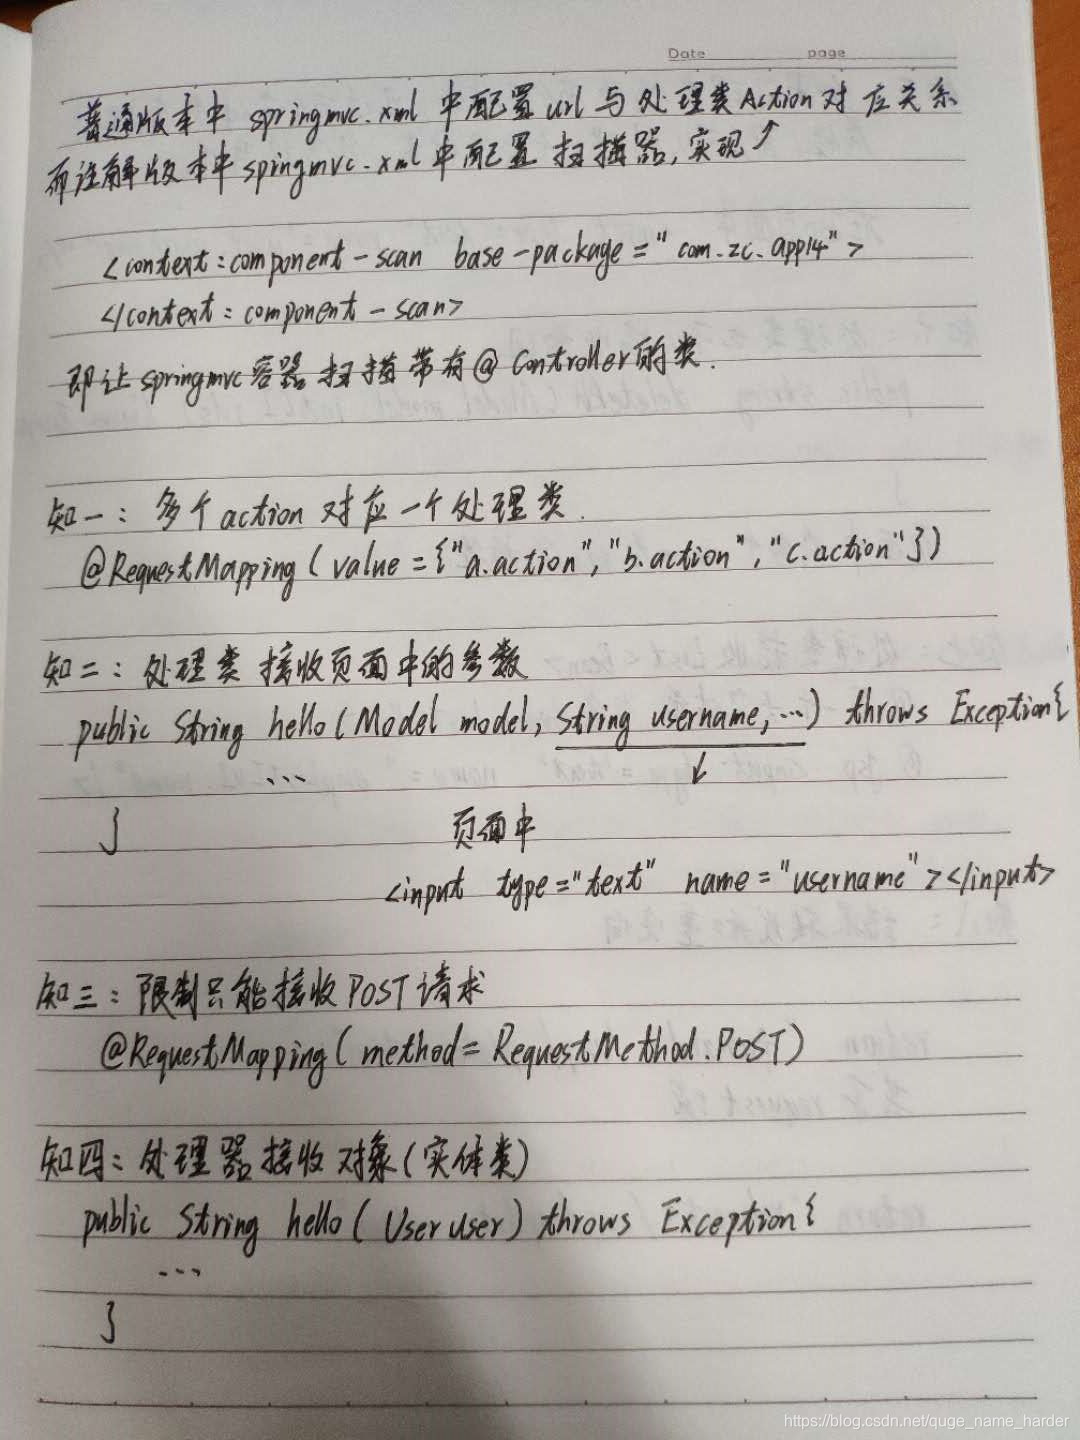 Date page
普通版本中 springmvc.xml 中配置 url 与处理类Action对应关系
而注解版本中 spingmvc.xml中配置 扫描器,实现↗
<context:component-scan base-package="com.zc.app14">
</context:component-scan>
即让springmvc容器扫描带有@Controller的类.
知一:多个action 对应一个处理类.
@RequestMapping(value={"a.action","b.action","c.action"})
知二:处理类 接收页面中的参数
public String hello(Model model, String username, …) throws Exception{
...
↓
}
页面中
<input type="text" name="username"></input>
知三:限制只能接收POST请求
@RequestMapping(method=RequestMethod.POST)
知四:处理器接收对象(实体类)
public String hello(User user) throws Exception{
...
}
https://blog.csdn.net/quge_name_harder